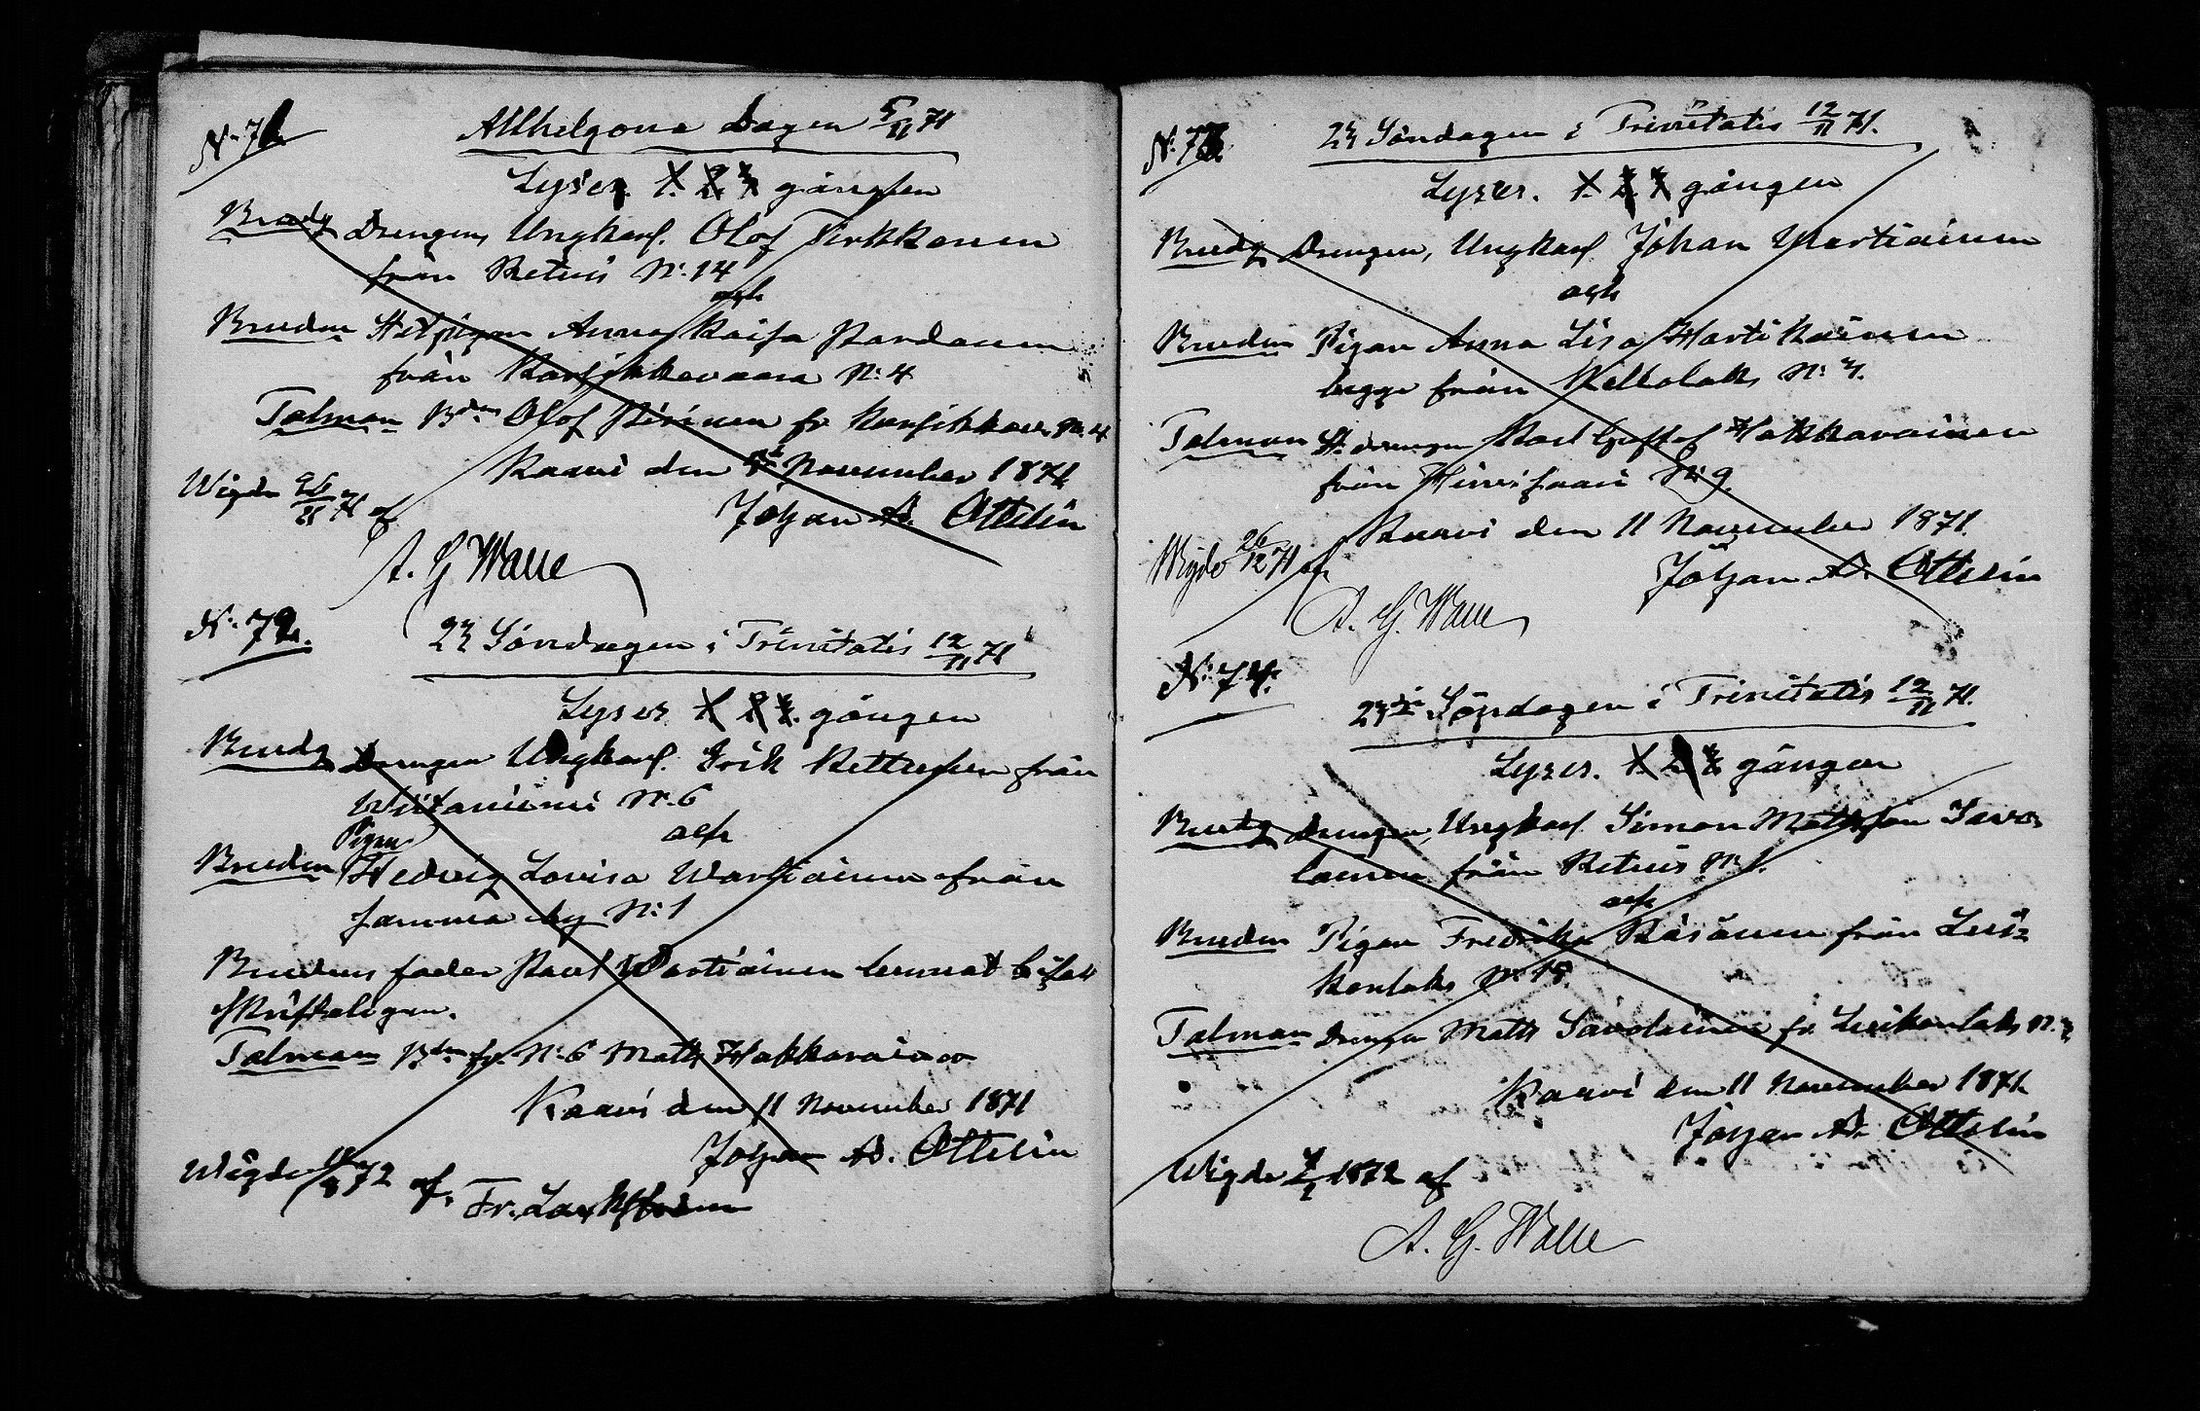 N: 71
Allhelgona Dagen 5/11 71
Lyses 1. 2. 3 gången
Brudg Drengen, Ungkarl. Olof Pirkkonen
från Retuis N: 14
och
Bruden Anna Kaisa Pardanen
från Karsikkovaara N: 4
Talman Bdn Olof Piirinen fr. Karsikkov. No. 4
Kaavi den November 1871
Johan Ad. Ottelin
Wigde 26/11 71 af
A. G. Walle
N: 72.
23 Söndagen i Trinitatis 12/11 71
Lyses 1 2 3. gången
Brudg Drengen Ungkarl. Erik Kettunen från
Wiitaniemi N: 6
och
Bruden Pigan Hedvig Lovisa Wartiainen från
samma by N: 1
Brudens fader Paul Wartiainen lemnat bifall
skrifteligen.
Talman Bdn fr. N: 6 Matts Hakkarainen
Kaavi den 11 November 1871
Johan Ad. Ottelin
Wigde 72 af.
Fr.
N: 73.
23 Söndagen i Trinitatis 12/11 71.
Lyses. 1. 2. 3 gången
Brudg Drengen, Ungkarl Johan Wartiainen
och
Bruden Pigan Anna Lisa Hartikainen
begge från Kellolaks N: 7.
Talman St. drengen Karl Gustaf Hakkarainen
från Hirvisaari N: 9.
Kaavi den 11 November 1871.
Johan Ad. Ottelin
Wigde 26/12 71 af
A. G. Walle
N: 74.
23:de Söndagen i Trinitatis 12/11 71.
Lyses. 1. 2 3 gången
Brudg Drengen, Ungkarl Simon Mattsson Savo-
lainen från Retuis N: 1.
och
Bruden Pigan Fredrika Räsänen från Lusi-
konlaks N: 18.
Talman Drengen Matts Savolainen fr. Lusikonlaks N: 7
Kaavi den 11 November 1871.
Johan Ad. Ottelin
Wigde 1872 af
A. G. Walle